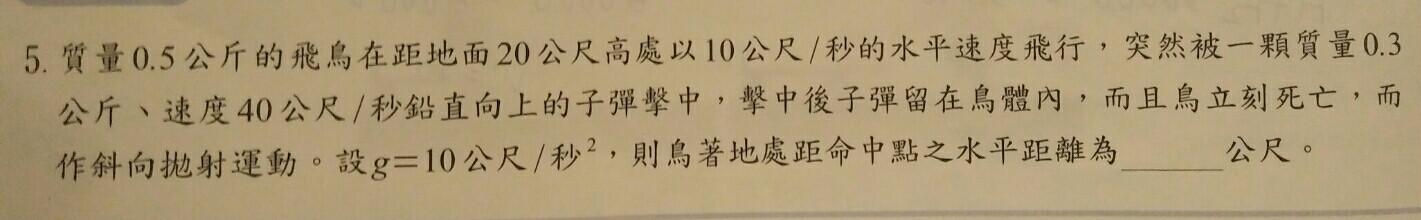 5. 質量0.5公斤的飛鳥在距地面20公尺高處以10公尺/秒的水平速度飛行，突然被一顆質量0.3
公斤、速度40公尺/秒鉛直向上的子彈擊中，擊中後子彈留在鳥體內，而且鳥立刻死亡，而
作斜向拋射運動。設g=10公尺/秒²，則鳥著地處距命中點之水平距離為______公尺。